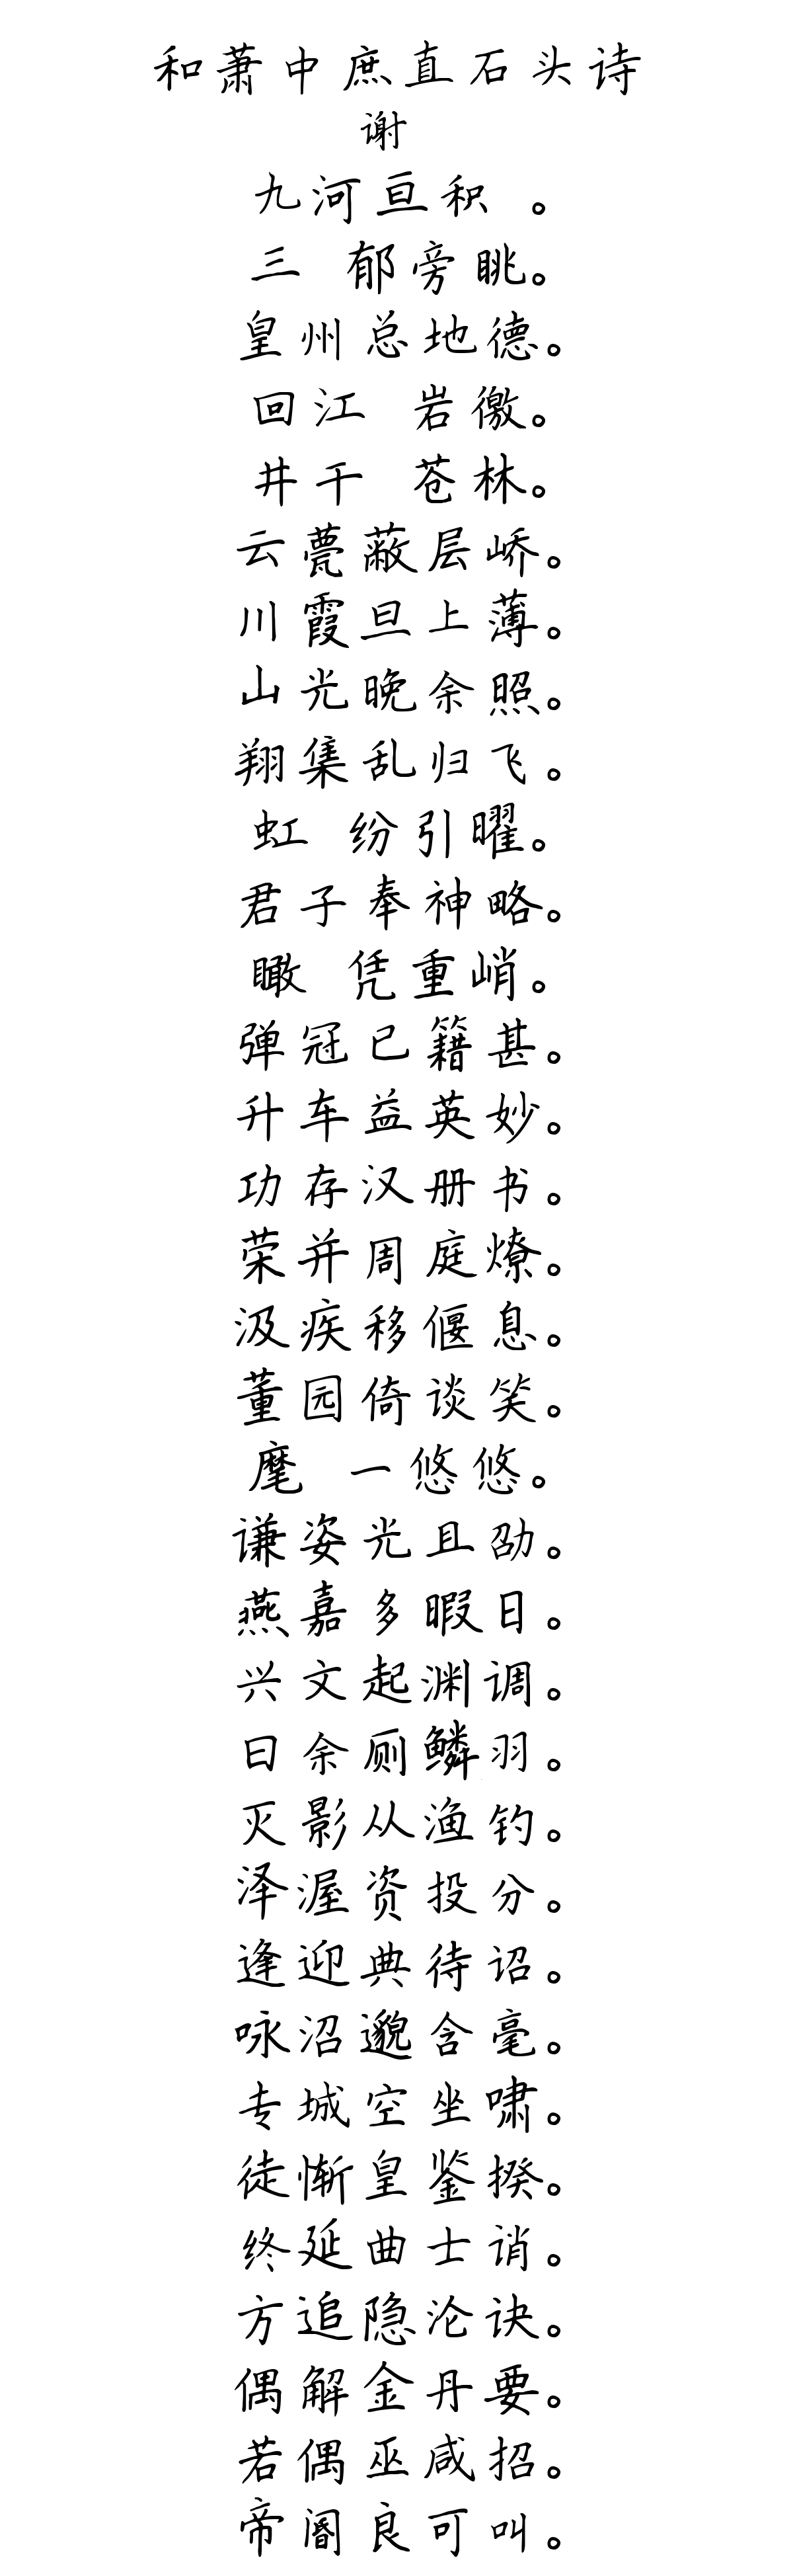 和萧中庶直石头诗
谢
九河亘积 。
三 郁旁眺。
皇州总地德。
回江 岩徼。
井干 苍林。
云甍蔽层峤。
川霞旦上薄。
山光晚余照。
翔集乱归飞。
虹 纷引曜。
君子奉神略。
瞰 凭重峭。
弹冠已籍甚。
升车益英妙。
功存汉册书。
荣并周庭燎。
汲疾移偃息。
董园倚谈笑。
麾 一悠悠。
谦姿光且劭。
燕嘉多暇日。
兴文起渊调。
曰余厕鳞羽。
灭影从渔钓。
泽渥资投分。
逢迎典待诏。
咏沼邈含毫。
专城空坐啸。
徒惭皇鉴揆。
终延曲士诮。
方追隐沦诀。
偶解金丹要。
若偶巫咸招。
帝阍良可叫。